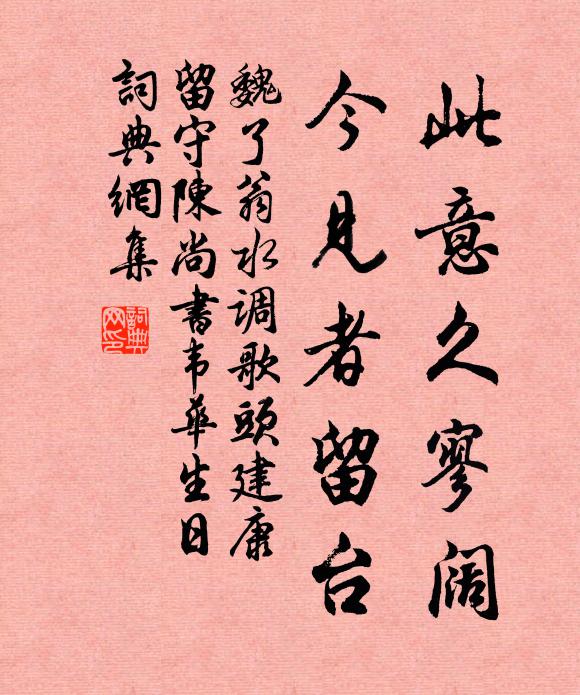 此意久寥阔
今見者留台
魏了翁水调歌頭建康
留守陳尚書韦華生日
詞典網集
詞典网印